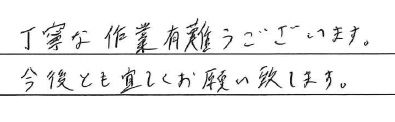 丁寧な作業有難うございます。
今後とも宜しくお願い致します。